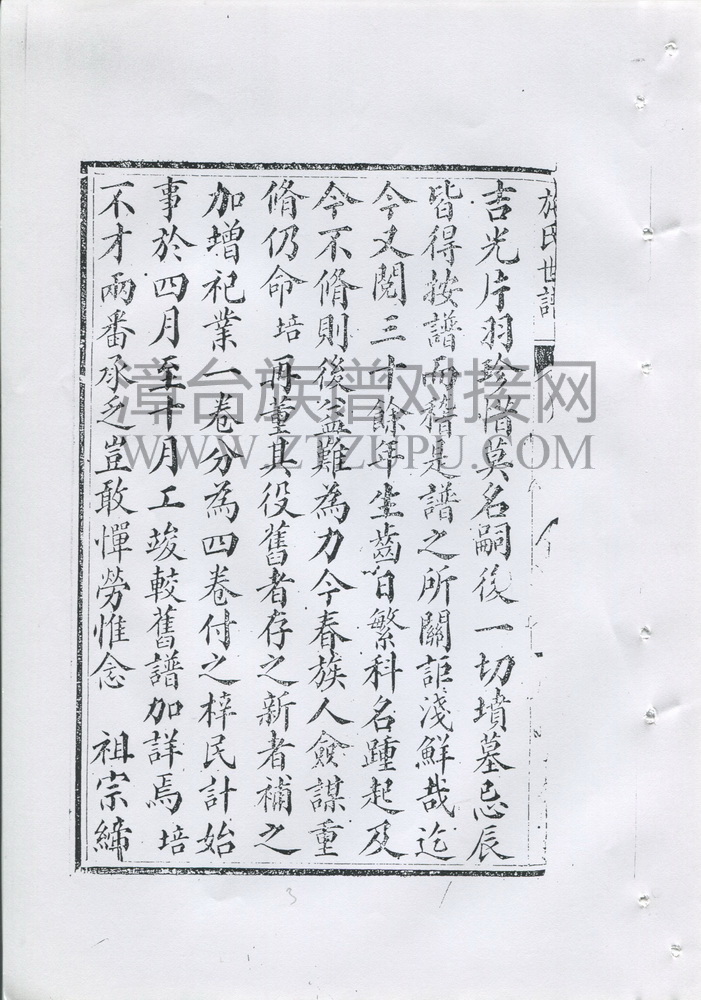 氏世譜
吉光片羽珍惜莫名嗣後一切墳墓忌辰
皆得按譜而稽是譜之所關詎淺鮮哉迄
今又閱三十餘年生齒日繁科名踵起及
今不脩則後益難為力今春族人僉謀重
脩仍命培再董其役舊者存之新者補之
加增祀業一卷分為四卷付之梓民計始
事於四月至十月工竣較舊譜加詳焉培
不才兩番承乏豈敢憚勞惟念 祖宗締
漳台族谱对接网
WWW.ZTZUPU.COM
3